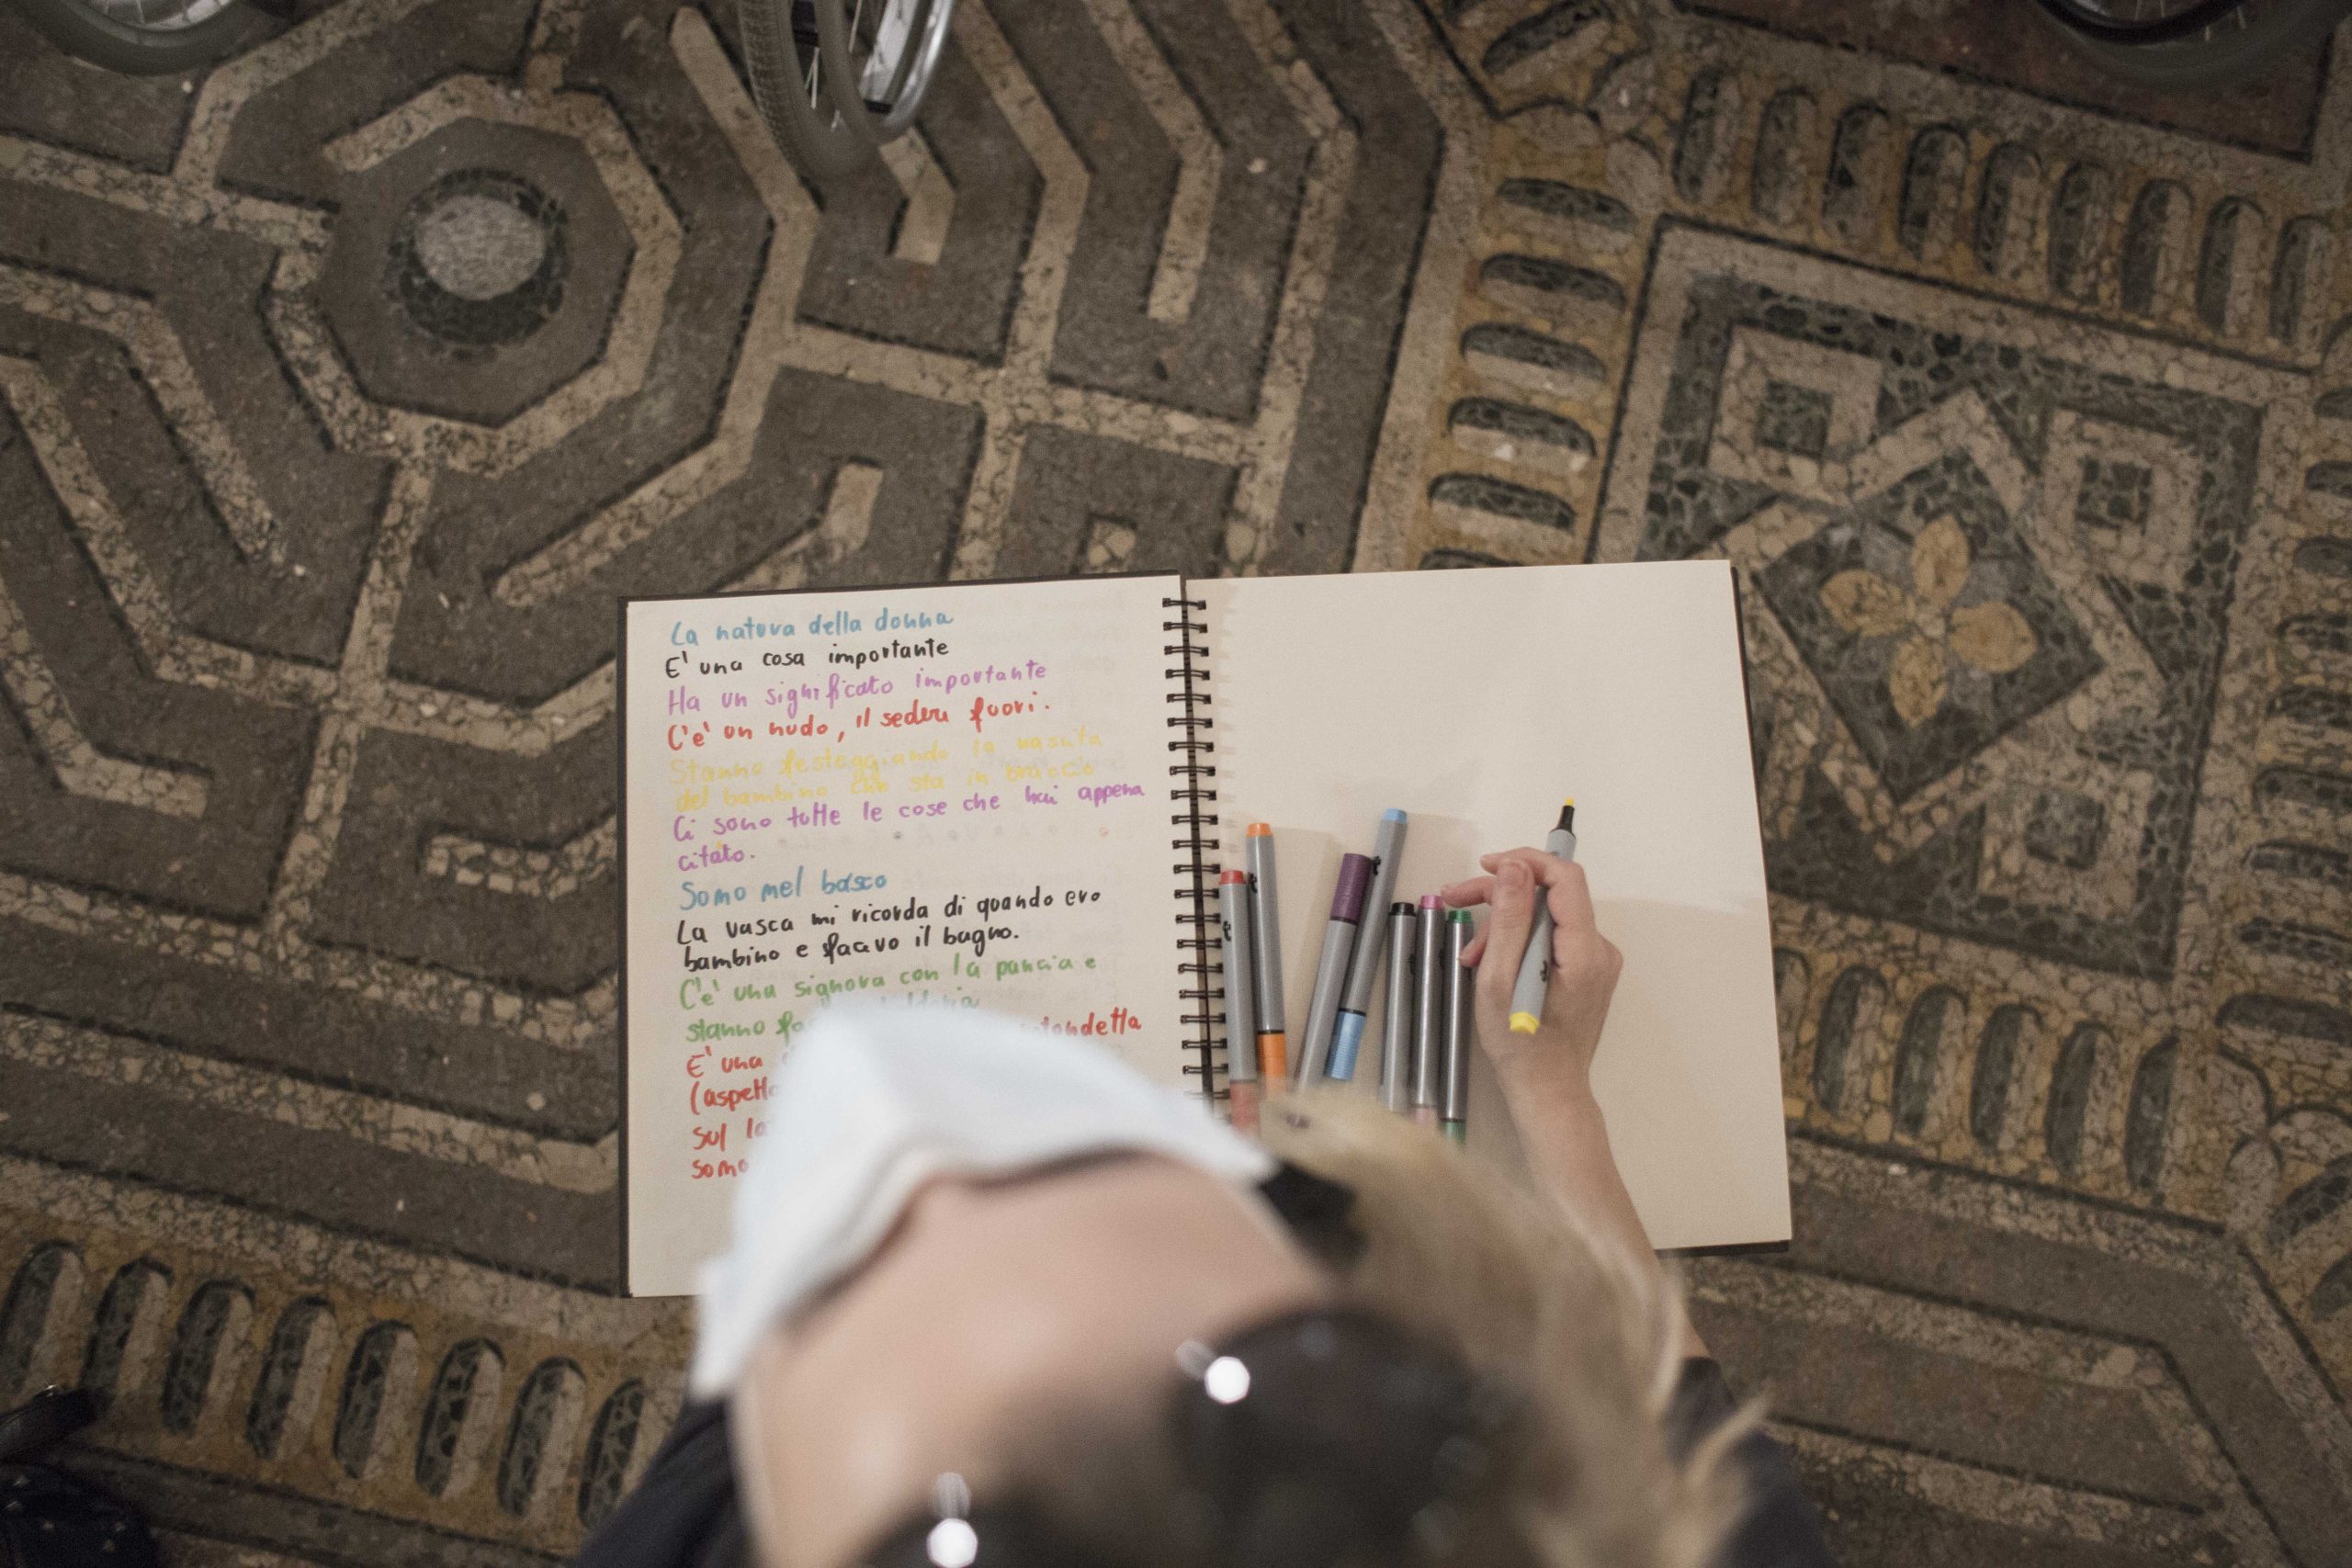 La natura della donna
E' una cosa importante
Ha un significato importante
C'e' un nudo, il sedere fuori.
Stanno festeggiando la nascita
del bambino che sta in braccio
Ci sono tutte le cose che hai appena
citato.
Sono nel bosco
La vasca mi ricorda di quando ero
bambino e facevo il bagno.
C'e' una signora con la pancia e
stanno
E' una
(aspetta
sul
sono